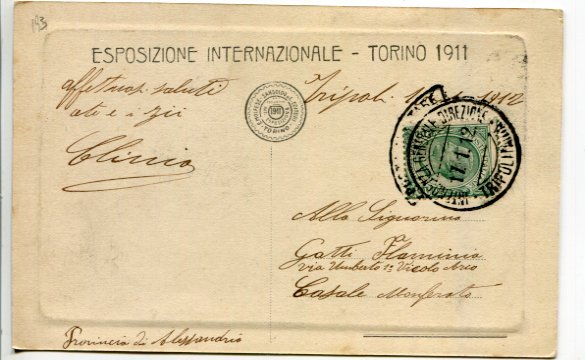 193
ESPOSIZIONE INTERNAZIONALE - TORINO 1911
affettuosi saluti
a te e i zii
Clinio
Tripoli 1912
1911
TORINO
DIREZIONE
TRIPOLI
Alla Signorina
Gatti Flaminia
via Umberto 1º Vicolo Arco
Casale Monferrato
Provincia di Alessandria